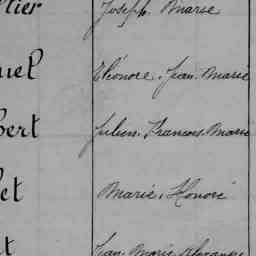 tier Joseph. Marie
uel Eléonore. Jean. Marie
bert Julien. Francois. Marie
et Marie. Honoré
t Jean. Marie. Alexandre